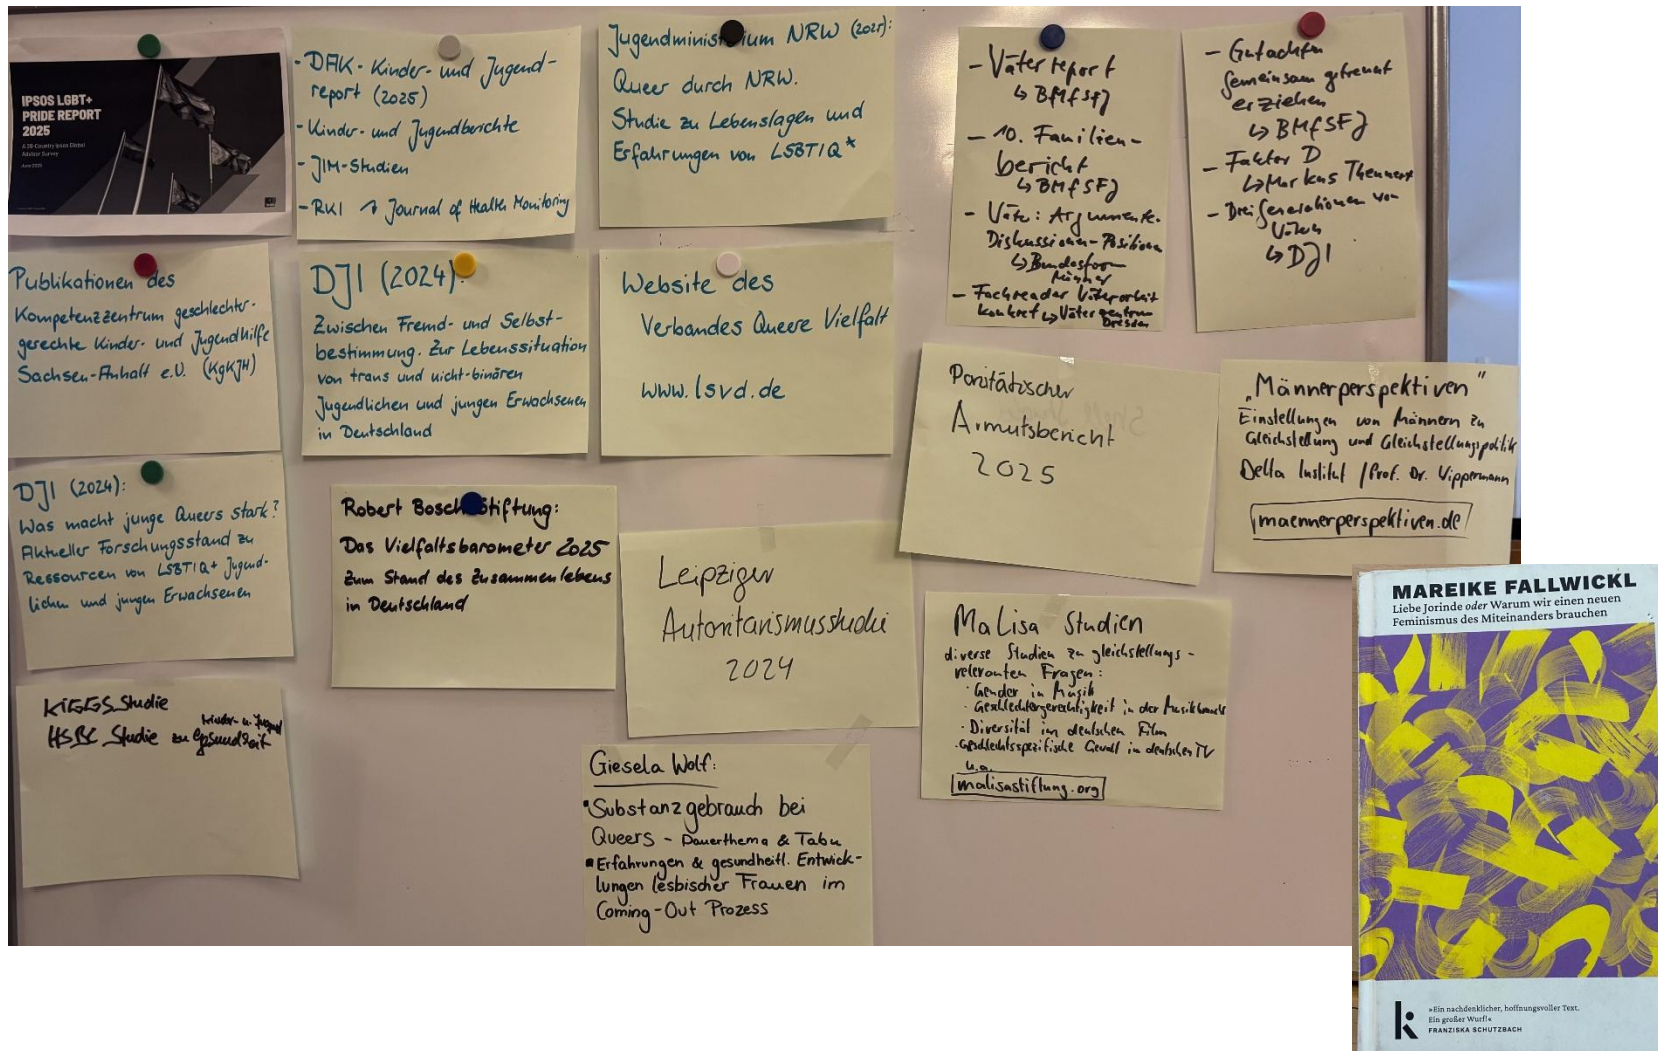 IPSOS LGBT+
PRIDE REPORT
2025
A 26-Country Ipsos Global
Advisor Survey
June 2025
- DAK - Kinder- und Jugend-
report (2025)
- Kinder- und Jugendberichte
- JIM-Studien
- RKI → Journal of Health Monitoring
Jugendministerium NRW (2025):
Queer durch NRW.
Studie zu Lebenslagen und
Erfahrungen von LSBTIQ*
- Väterreport
↳ BMFSFJ
- 10. Familien-
bericht
↳ BMFSFJ
- Väter: Argumente-
Diskussionen-Positionen
↳ Bundesforum
Männer
- Fachreader Väterarbeit
konkret ↳ Väterzentrum
Dresden
- Gutachten
gemeinsam getrennt
erziehen
↳ BMFSFJ
- Faktor D
↳ Markus Theunert
- Drei Generationen von
Vätern
↳ DJI
Publikationen des
Kompetenzzentrum geschlechter-
gerechte Kinder- und Jugendhilfe
Sachsen-Anhalt e.V. (KgKJH)
DJI (2024):
Zwischen Fremd- und Selbst-
bestimmung. Zur Lebenssituation
von trans und nicht-binären
Jugendlichen und jungen Erwachsenen
in Deutschland
Website des
Verbandes Queere Vielfalt
www.lsvd.de
Paritätischer
Armutsbericht
2025
„Männerperspektiven"
Einstellungen von Männern zu
Gleichstellung und Gleichstellungspolitik
Della Institut / Prof. Dr. Wippermann
maennerperspektiven.de
DJI (2024):
Was macht junge Queers stark?
Aktueller Forschungsstand zu
Ressourcen von LSBTIQ+ Jugend-
lichen und jungen Erwachsenen
Robert Bosch Stiftung:
Das Vielfaltsbarometer 2025
Zum Stand des Zusammenlebens
in Deutschland
Leipziger
Autoritarismusstudie
2024
MaLisa Studien
diverse Studien zu gleichstellungs-
relevanten Fragen:
· Gender in Musik
· Geschlechtergerechtigkeit in der Musikbranche
· Diversität im deutschen Film
· Geschlechtsspezifische Gewalt im deutschen TV
u.a.
malisastiftung.org
KiGGS Studie
HSBC Studie zu Kinder- u. Jugend
gesundheit
Giesela Wolf:
▪ Substanzgebrauch bei
Queers - Dauerthema & Tabu
▪ Erfahrungen & gesundheitl. Entwick-
lungen lesbischer Frauen im
Coming-Out Prozess
MAREIKE FALLWICKL
Liebe Jorinde oder Warum wir einen neuen
Feminismus des Miteinanders brauchen
k
»Ein nachdenklicher, hoffnungsvoller Text.
Ein großer Wurf!«
FRANZISKA SCHUTZBACH